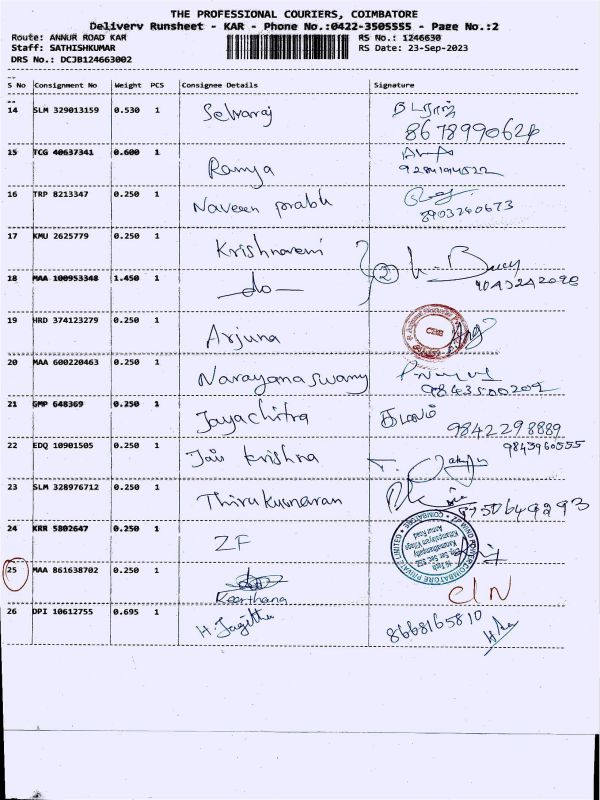 THE PROFESSIONAL COURIERS, COIMBATORE
Delivery Runsheet - KAR - Phone No.:0422-3505555 - Page No.:2
Route: ANNUR ROAD KAR RS No.: 1246630
Staff: SATHISHKUMAR RS Date: 23-Sep-2023
DRS No.: DCJB124663002
S No Consignment No Weight PCS Consignee Details Signature
14 SLM 329013159 0.530 1 Selvaraj
8678990624
15 TCG 40637341 0.600 1 Ramya
16 TRP 8213347 0.250 1 Naveen prabh
8903240673
17 KMU 2625779 0.250 1 Krishnaveni
18 MAA 100953348 1.450 1 -do- 2
19 HRD 374123279 0.250 1 Arjuna
20 MAA 600220463 0.250 1 Narayanaswamy
9843500202
21 GMP 648369 0.250 1 Jayachitra
9842298889
22 EDQ 10901505 0.250 1 Jai krishna 9843960555
23 SLM 328976712 0.250 1 Thirukumaran
8750649293
24 KRR 5802647 0.250 1 ZF
25 MAA 861638702 0.250 1 Keerthana CIN
26 DPI 10612755 0.695 1 8668165810